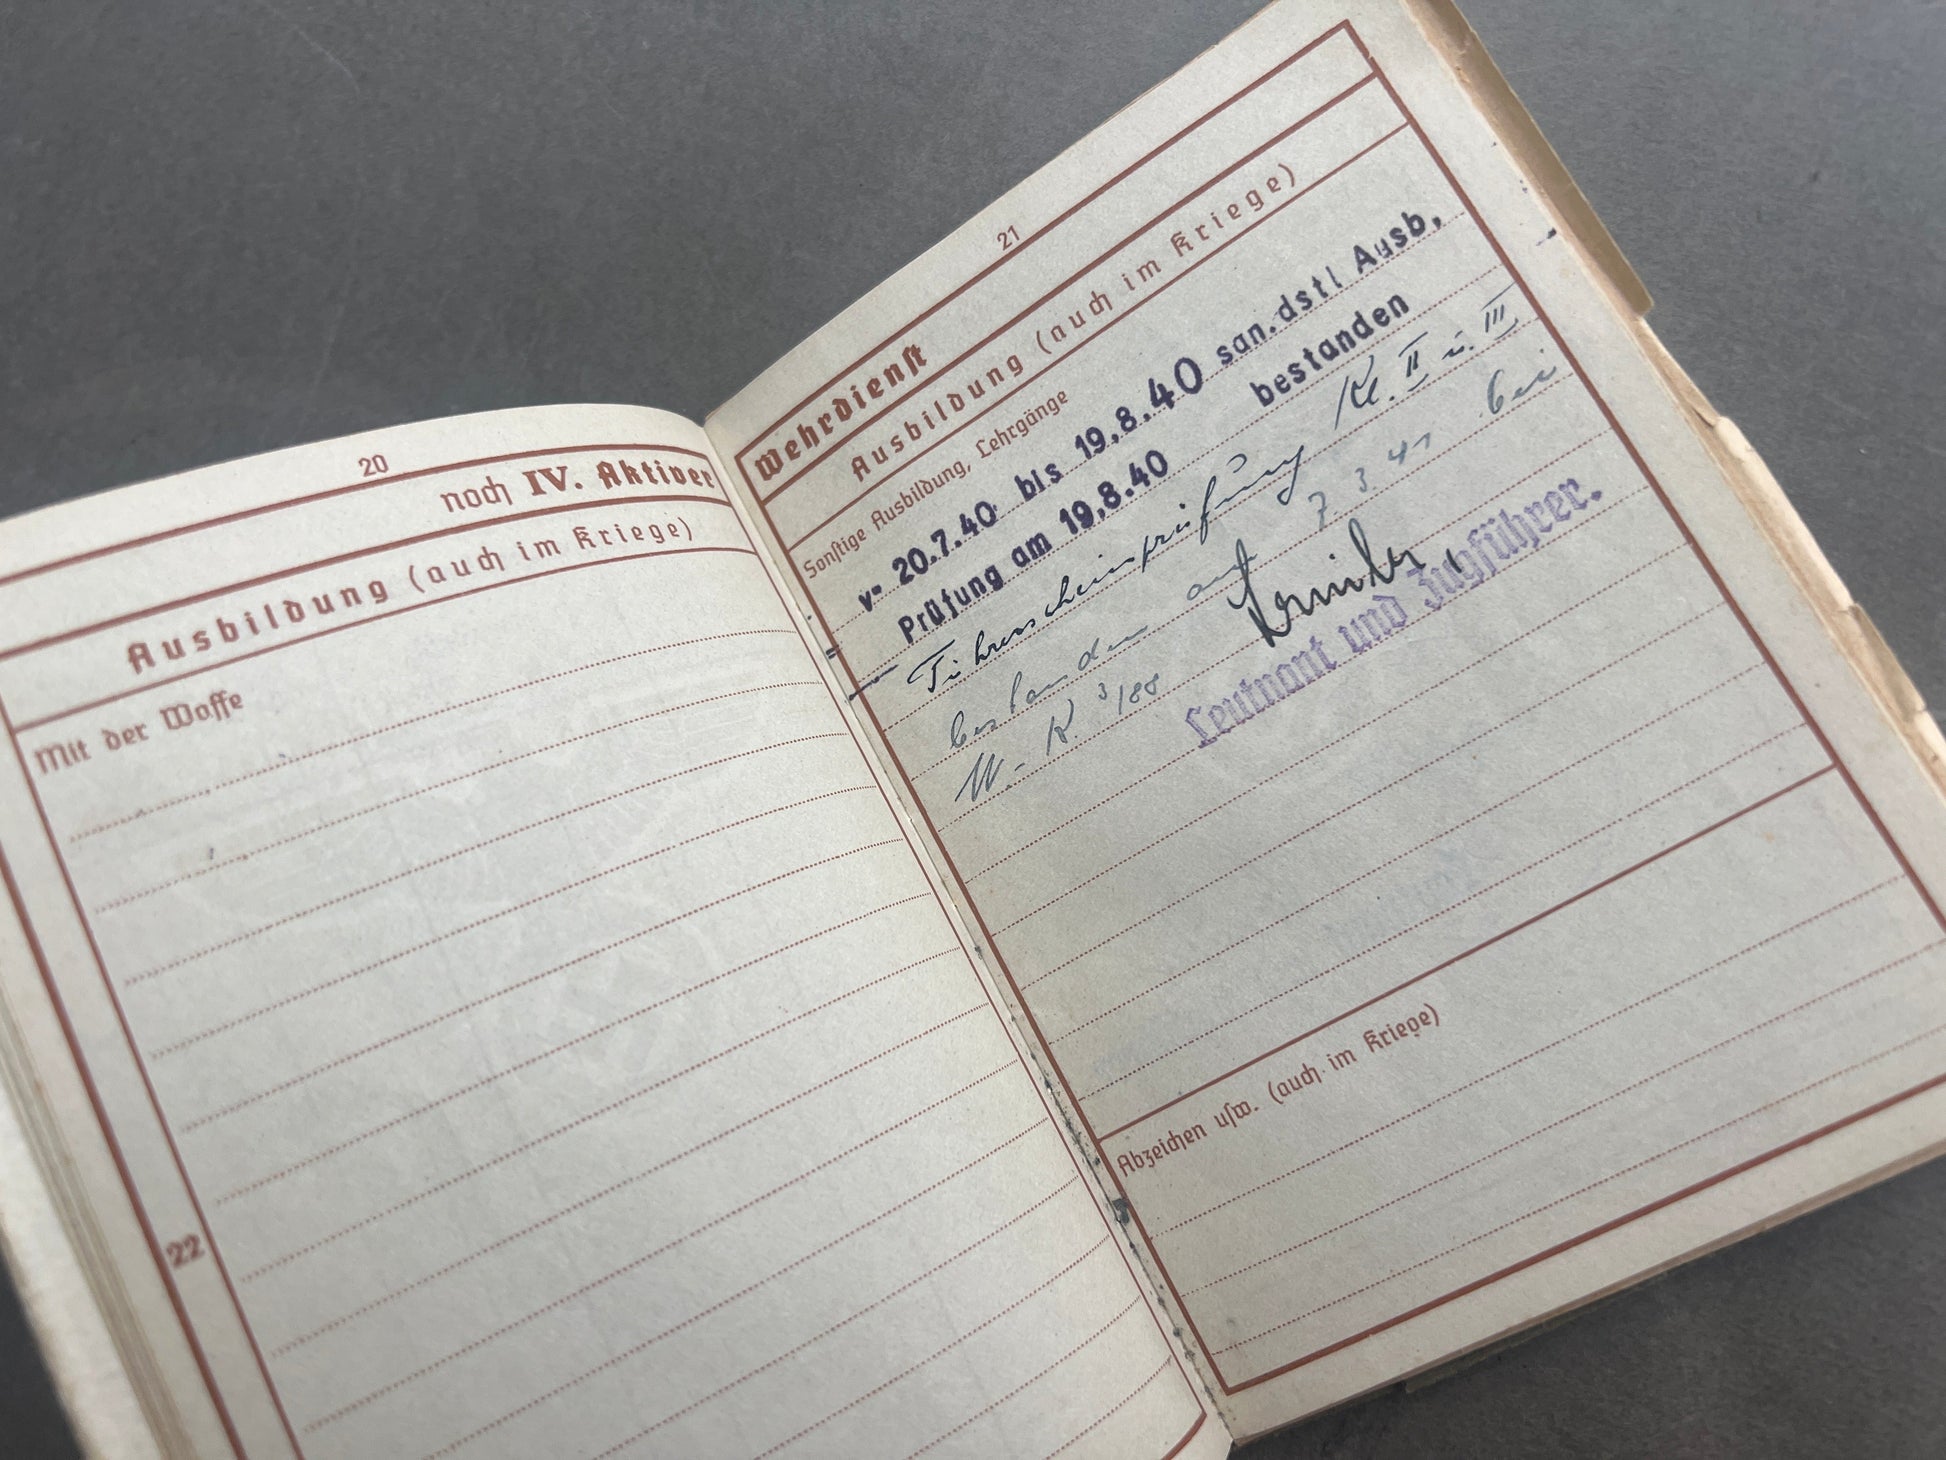 20
noch IV. Aktiver
Ausbildung (auch im Kriege)
Mit der Waffe
22
21
Wehrdienst
Ausbildung (auch im Kriege)
Sonstige Ausbildung, Lehrgänge
v= 20.7.40 bis 19.8.40 san.dstl Ausb,
Prüfung am 19.8.40 bestanden
Führerscheinprüfung Kl. II u. III
bestanden am 7 3. 41 bei
W. K 3/88
Leutnant und Zugführer.
Abzeichen usw. (auch im Kriege)